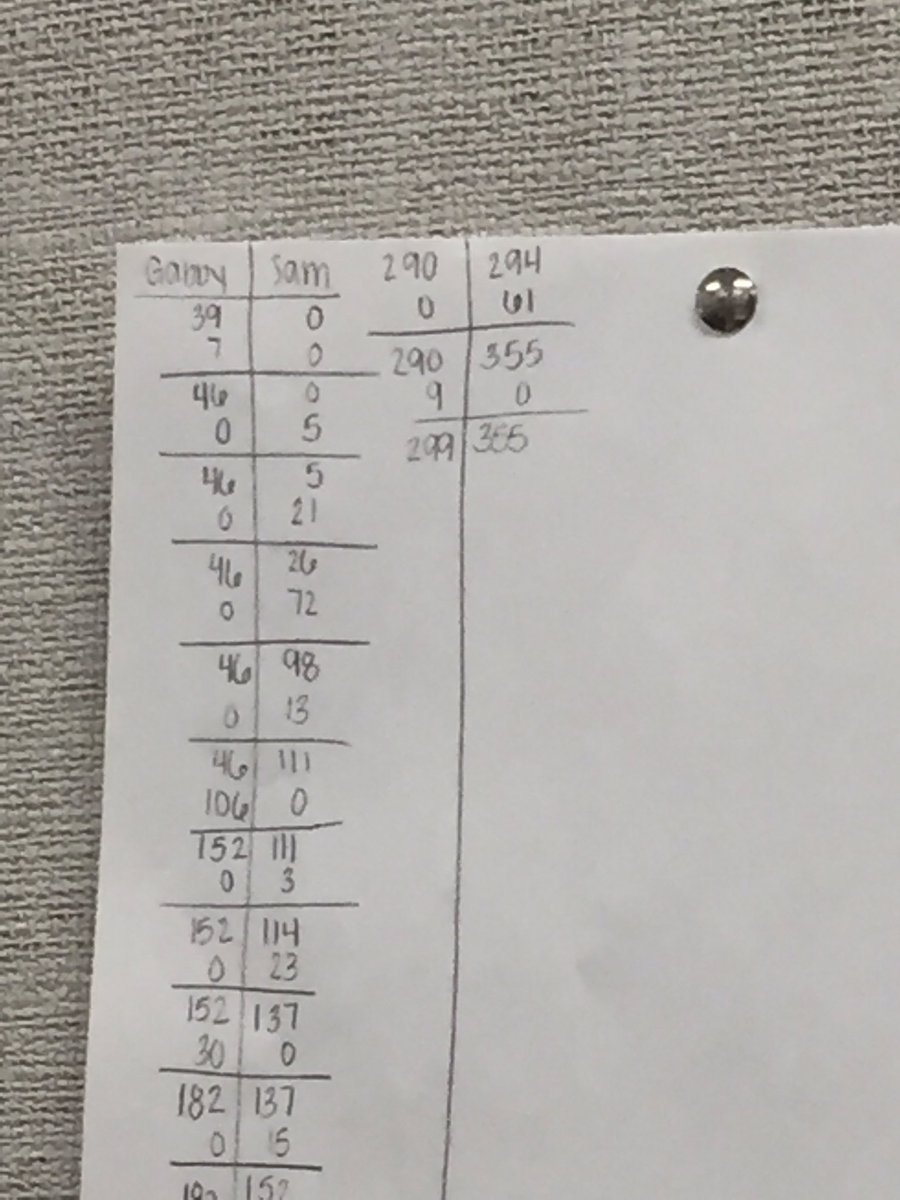 Gabby Sam
39 0
7 0
46 0
0 5
46 5
0 21
46 26
0 72
46 98
0 13
46 111
106 0
152 111
0 3
152 114
0 23
152 137
30 0
182 137
0 15
182 152
290 294
0 61
290 355
9 0
299 355